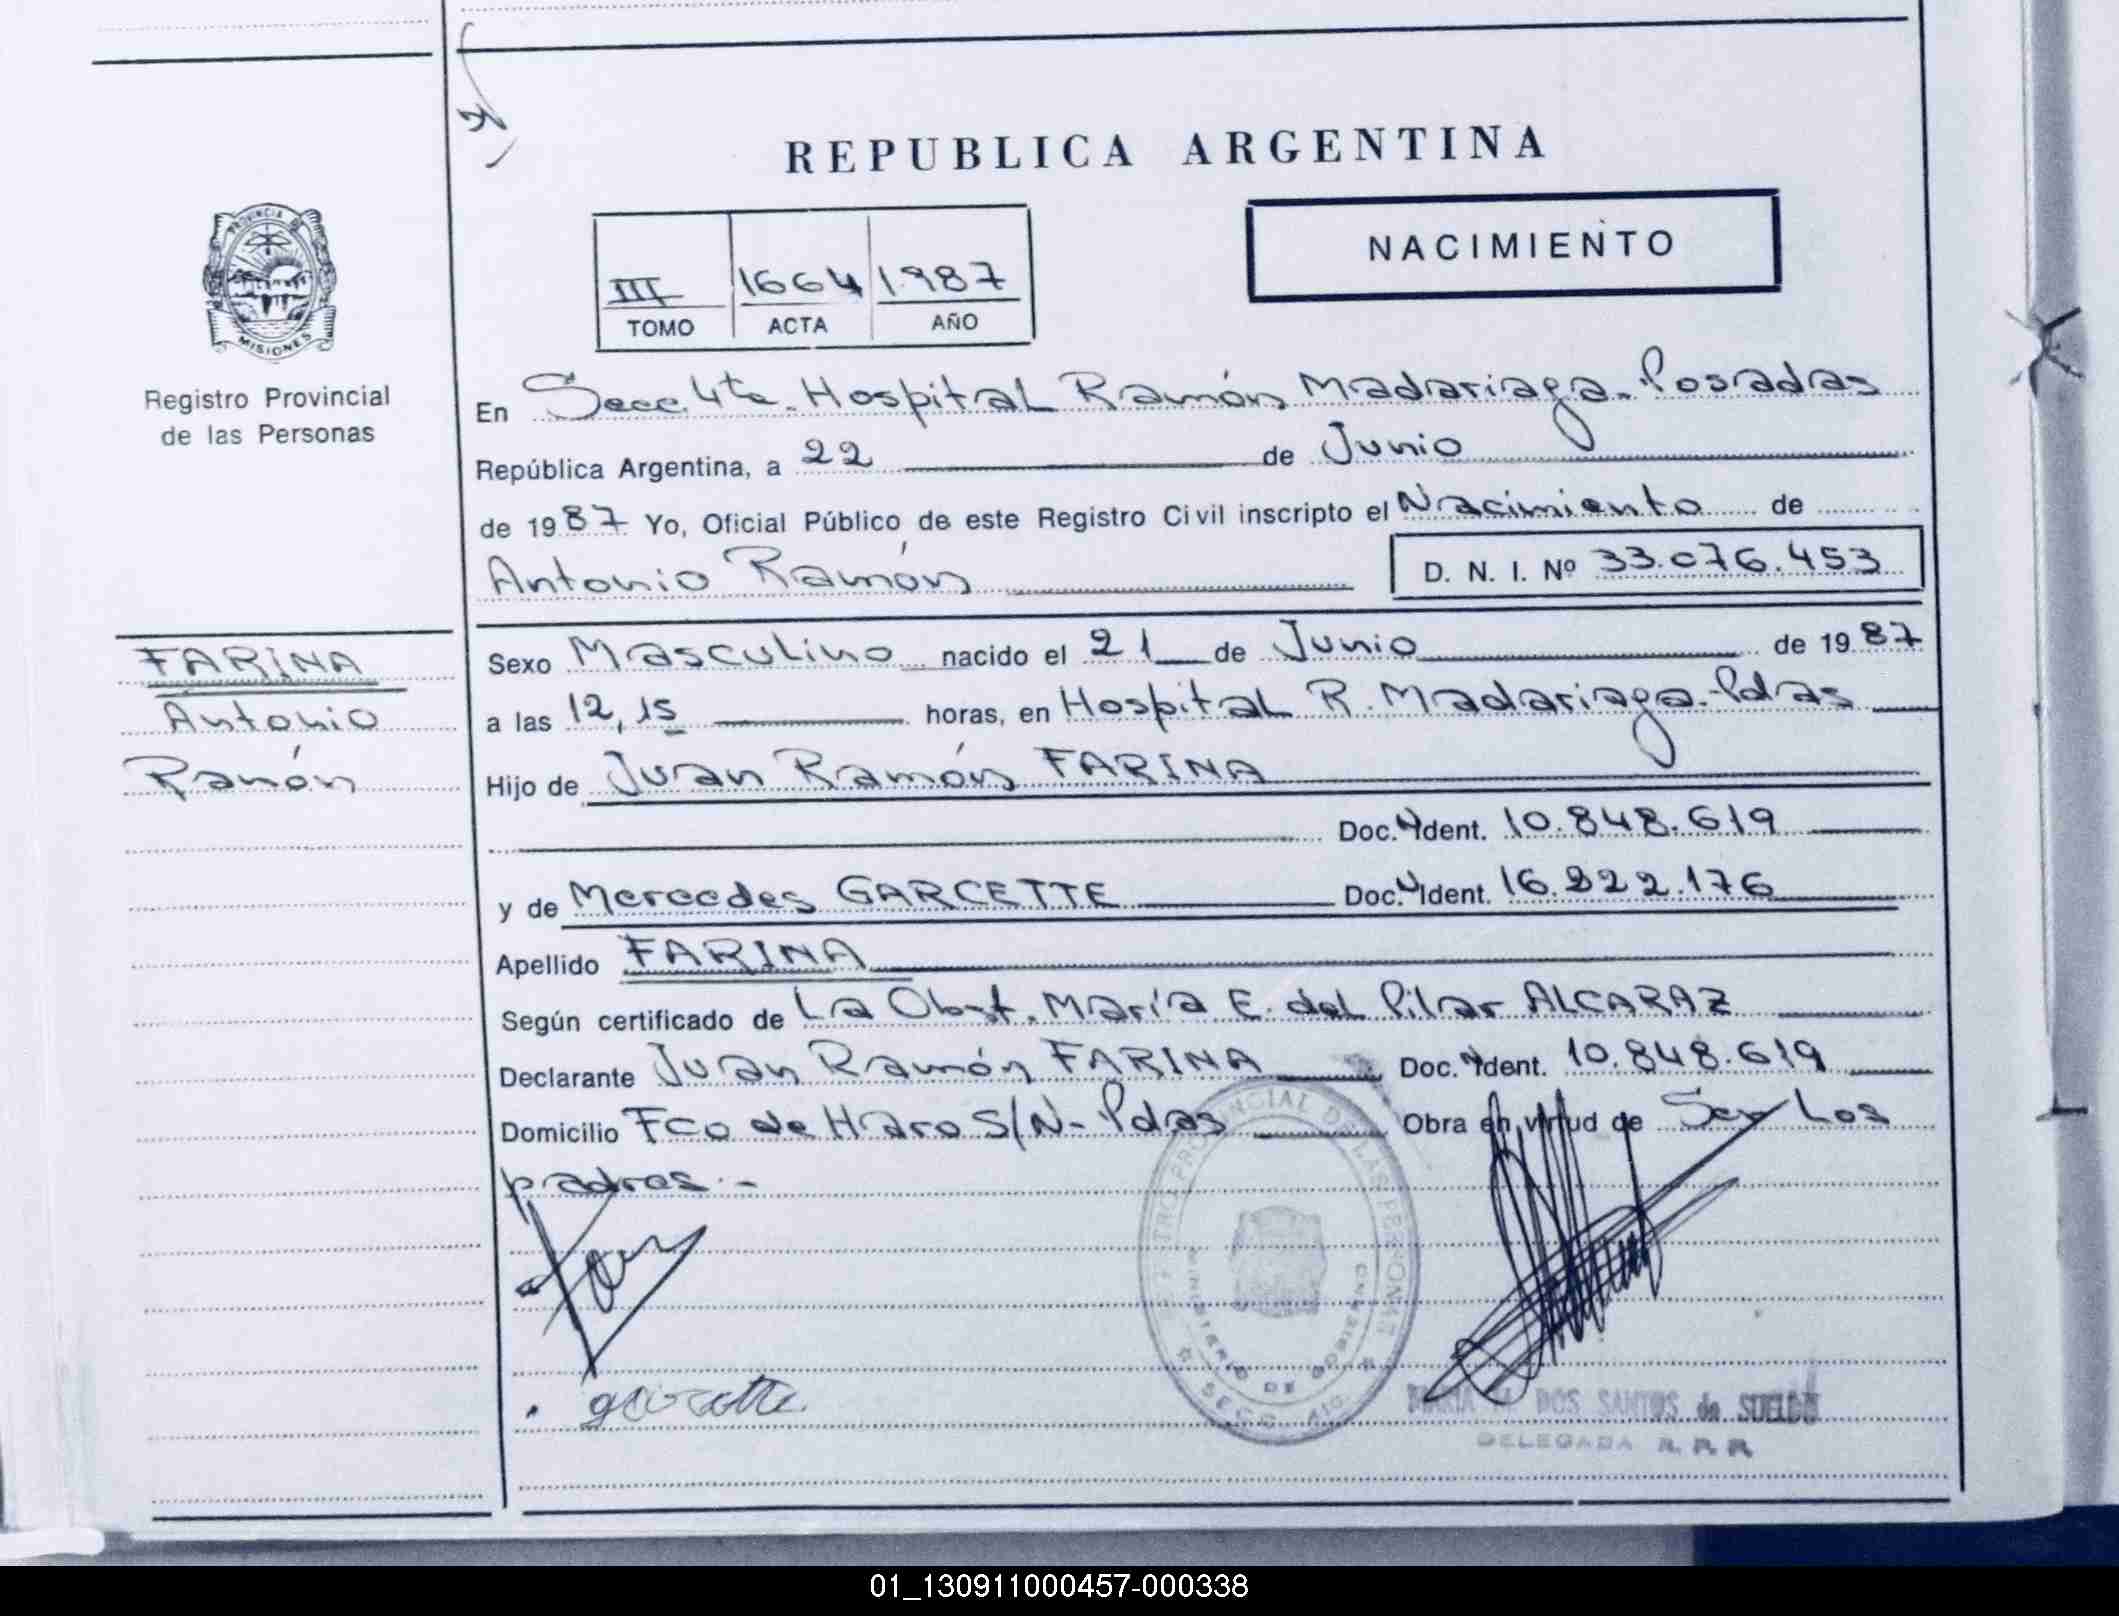 REPUBLICA ARGENTINA
NACIMIENTO
III 1664 1987
TOMO ACTA AÑO
PROVINCIA DE
MISIONES
Registro Provincial
de las Personas
En Secc. 4ta. Hospital Ramón Madariaga - Posadas
República Argentina, a 22 de Junio
de 1987 Yo, Oficial Público de este Registro Civil inscripto el Nacimiento de
Antonio Ramón D. N. I. Nº 33.076.453
FARINA
Antonio
Ramón
Sexo Masculino nacido el 21 de Junio de 1987
a las 12,15 horas, en Hospital R. Madariaga - Pdas
Hijo de Juan Ramón FARINA
Doc. Ident. 10.848.619
y de Mercedes GARCETTE Doc. Ident. 16.222.176
Apellido FARINA
Según certificado de La Obst. María E. del Pilar ALCARAZ
Declarante Juan Ramón FARINA Doc. Ident. 10.848.619
Domicilio Fco de Haro S/N - Pdas Obra en virtud de Ser Los
padres.-
REGISTRO PROVINCIAL DE LAS PERSONAS
MINISTERIO DE GOBIERNO
garcette
DOS SANTOS de SUELDO
DELEGADA R. P. P.
01_130911000457-000338